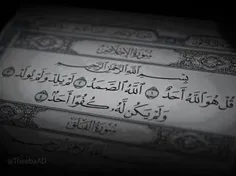 سُورَةُ الْإِخْلَاصِ
بِسْمِ اللَّهِ الرَّحْمَٰنِ الرَّحِيمِ
قُلْ هُوَ اللَّهُ أَحَدٌ ١ اللَّهُ الصَّمَدُ ٢ لَمْ يَلِدْ وَلَمْ يُولَدْ ٣
وَلَمْ يَكُن لَّهُ كُفُوًا أَحَدٌ ٤
سُورَةُ الْفَلَقِ
@ThoebaAD